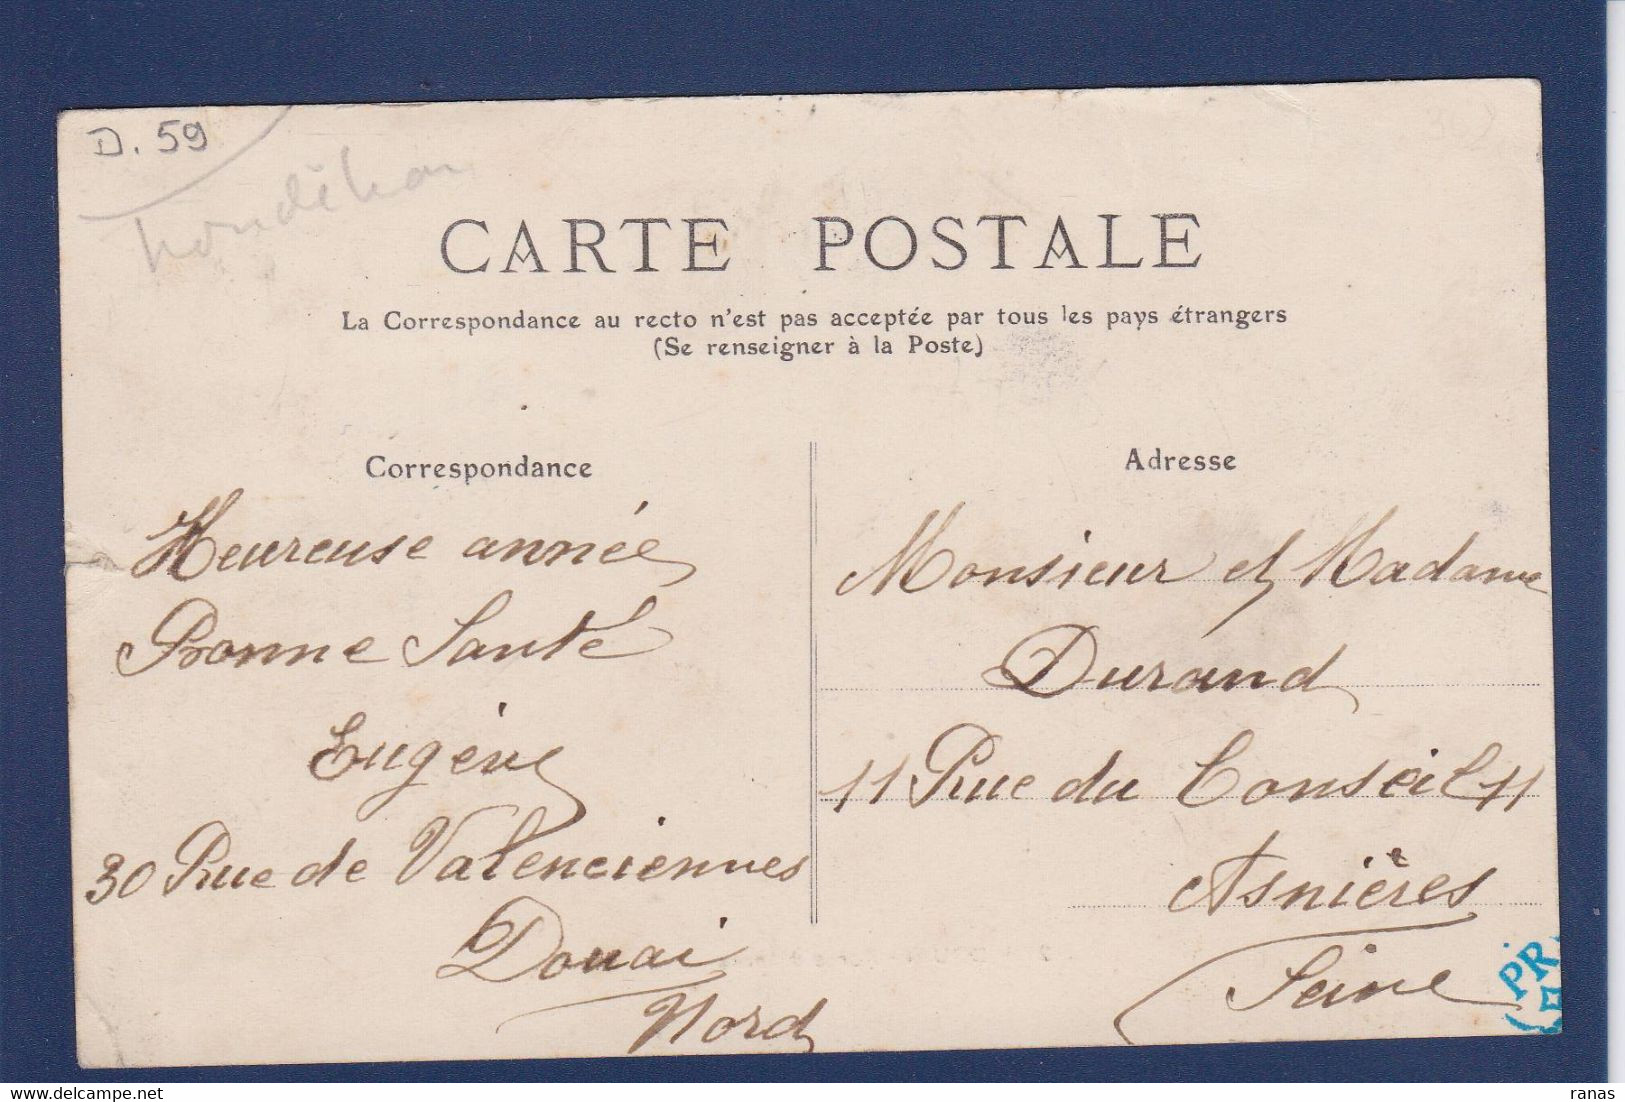 D. 59
CARTE POSTALE
La Correspondance au recto n'est pas acceptée par tous les pays étrangers
(Se renseigner à la Poste)
Correspondance
Heureuse année
Bonne Santé
Eugène
30 Rue de Valenciennes
Douai
Nord
Adresse
Monsieur et Madame
Durand
11 Rue du Conseil 11
Asnières
Seine
PR
ranas